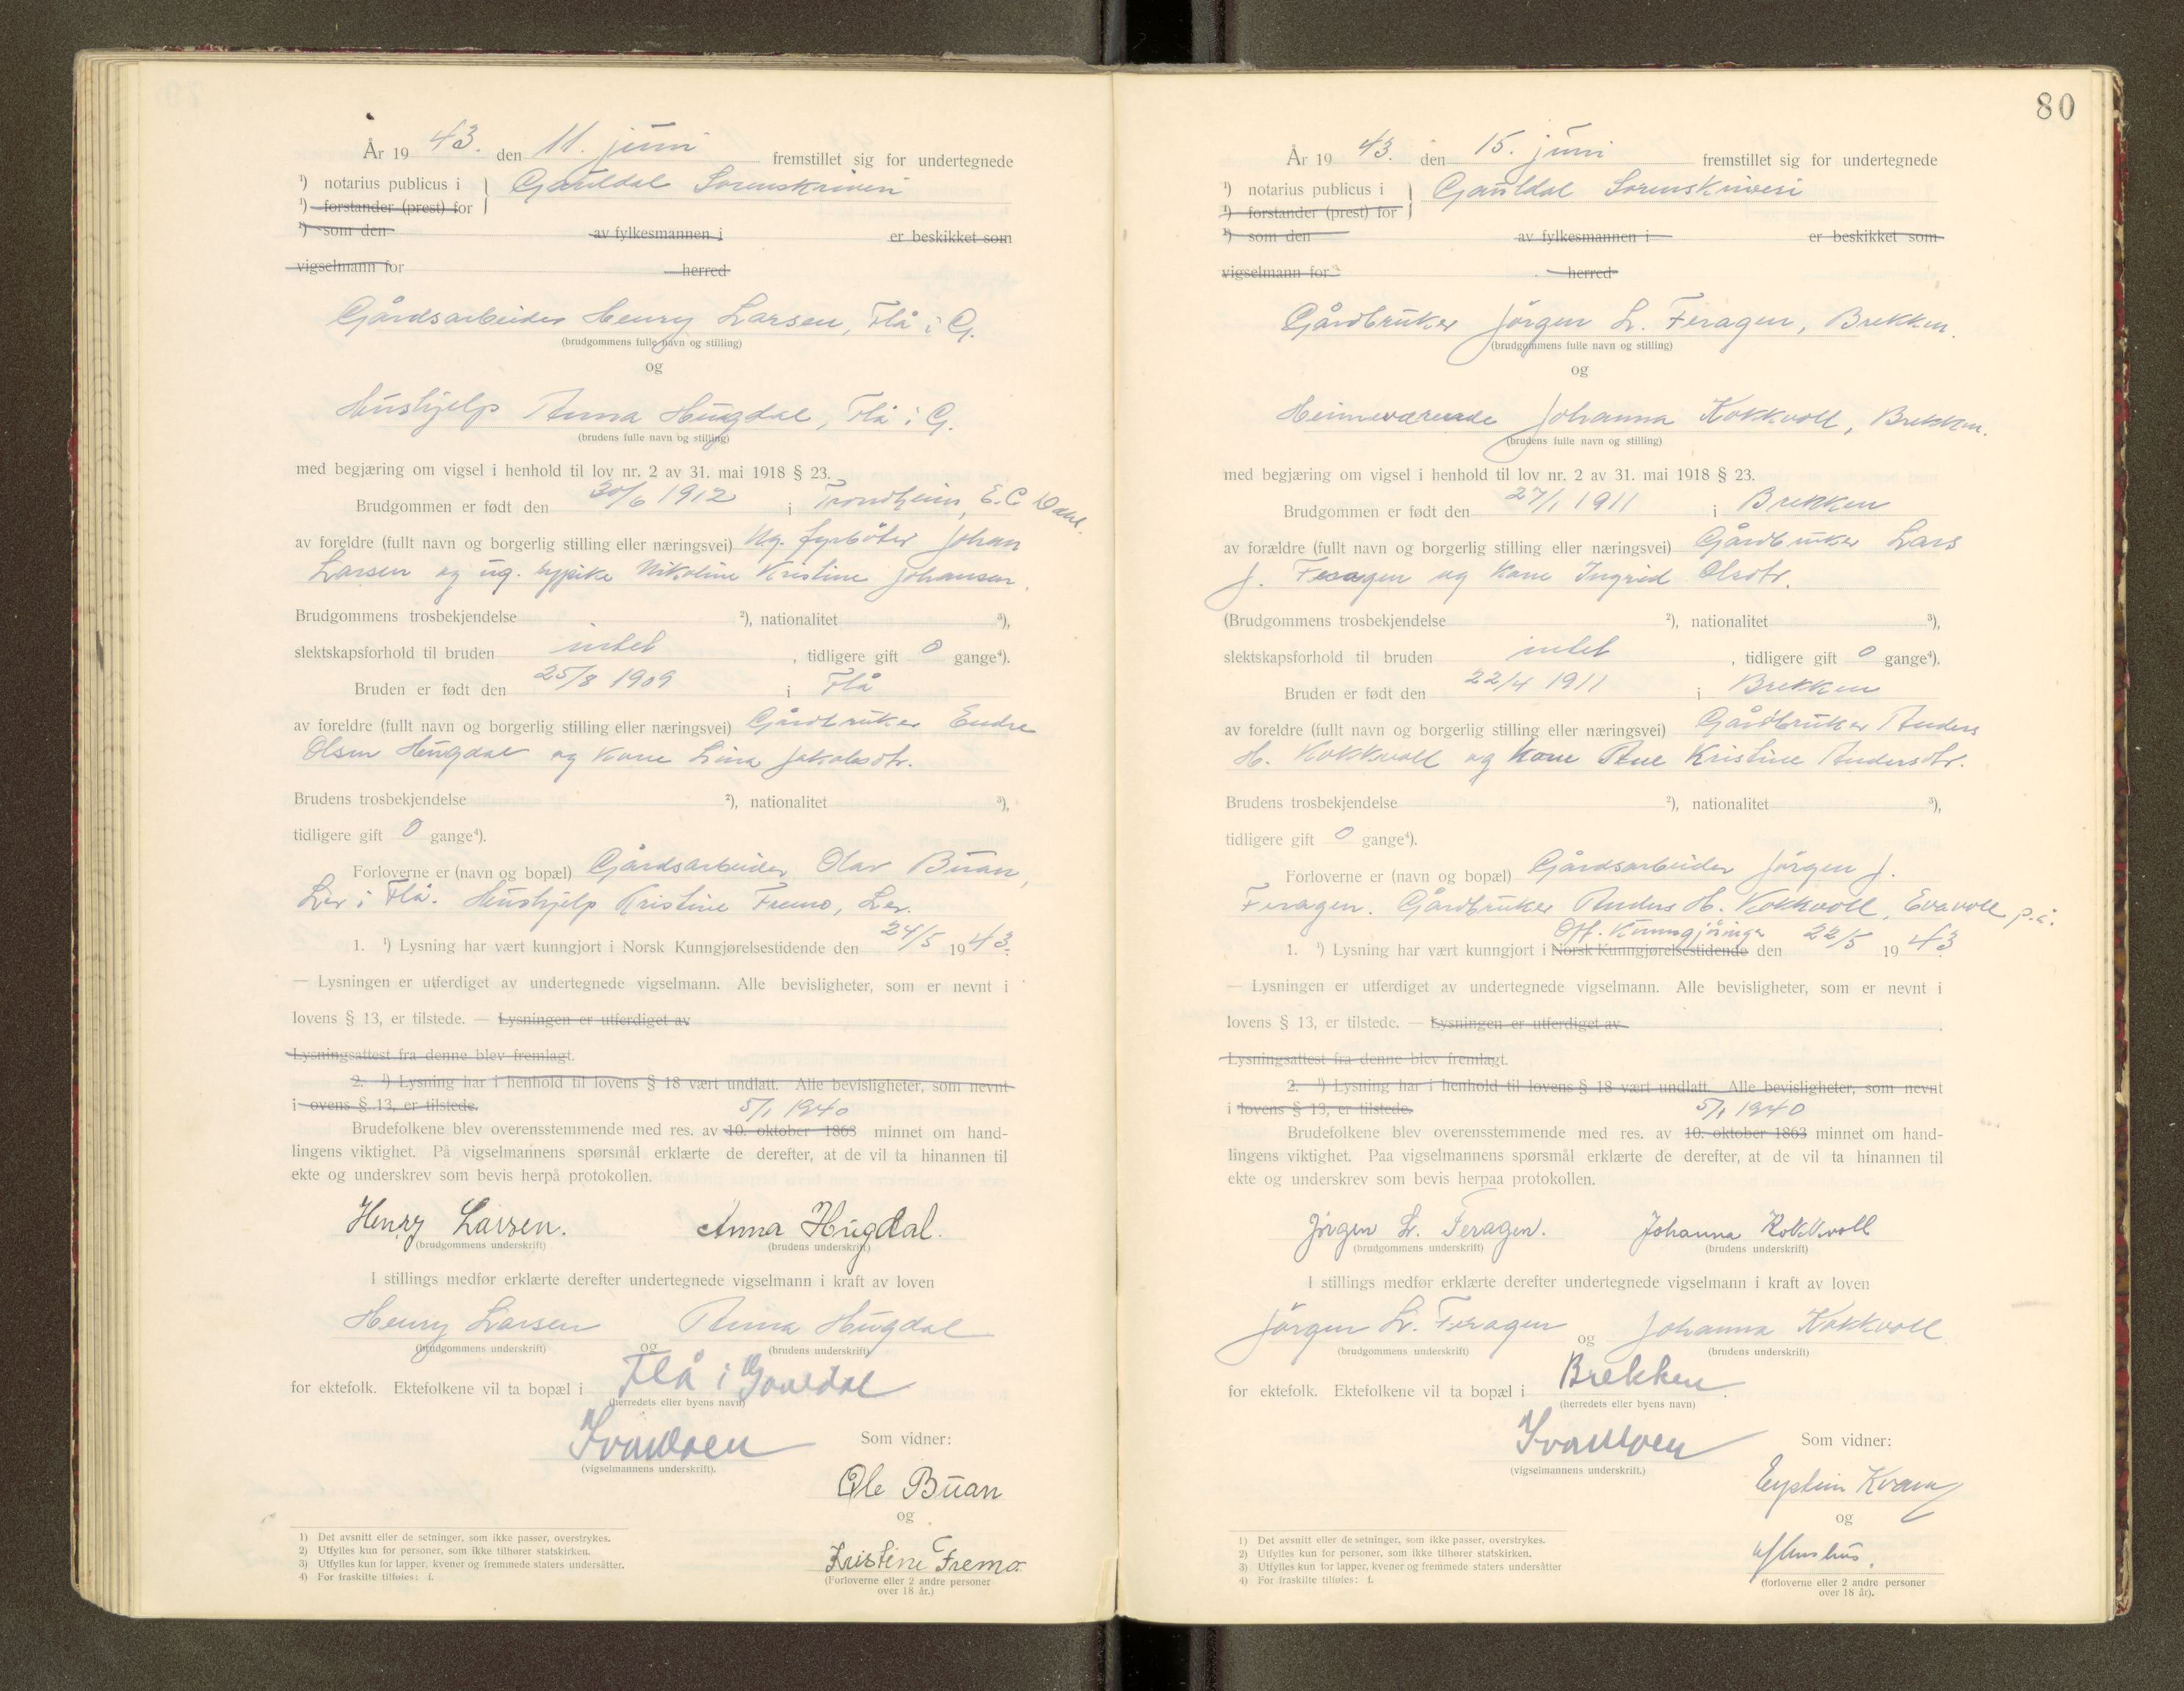 År 1943. den 11. juni fremstillet sig for undertegnede
¹) notarius publicus i } Gauldal Sorenskriveri
¹) forstander (prest) for
¹) som den av fylkesmannen i er beskikket som
vigselmann for herred
Gårdsarbeider Henry Larsen, Flå i G.
(brudgommens fulle navn og stilling)
og
Hushjelp Anna Hugdal, Flå i G.
(brudens fulle navn og stilling)
med begjæring om vigsel i henhold til lov nr. 2 av 31. mai 1918 § 23.
Brudgommen er født den 30/6 1912 i Trondheim, E. C. Dahl.
av foreldre (fullt navn og borgerlig stilling eller næringsvei) Ug. fyrbøter Johan
Larsen og ug. Nikoline Kristine Johansen.
Brudgommens trosbekjendelse ²), nationalitet ³),
slektskapsforhold til bruden intet, tidligere gift 0 gange⁴).
Bruden er født den 25/8 1909 i Flå
av foreldre (fullt navn og borgerlig stilling eller næringsvei) Gårdbruker Endre
Olsen Hugdal og kone Lina Jakobsdtr.
Brudens trosbekjendelse ²), nationalitet ³),
tidligere gift 0 gange⁴).
Forloverne er (navn og bopæl) Gårdsarbeider Olav Buan,
Ler i Flå. Hushjelp Kristine Fremo, Ler.
1. ¹) Lysning har vært kunngjort i Norsk Kunngjørelsestidende den 24/5 1943.
— Lysningen er utferdiget av undertegnede vigselmann. Alle bevisligheter, som er nevnt i
lovens § 13, er tilstede. — Lysningen er utferdiget av
Lysningsattest fra denne blev fremlagt.
2. ¹) Lysning har i henhold til lovens § 18 vært undlatt. Alle bevisligheter, som nevnt
i ovens § 13, er tilstede. 5/1 1940
Brudefolkene blev overensstemmende med res. av 10. oktober 1863 minnet om hand-
lingens viktighet. På vigselmannens spørsmål erklærte de derefter, at de vil ta hinannen til
ekte og underskrev som bevis herpå protokollen.
Henry Larsen. Anna Hugdal.
(brudgommens underskrift) (brudens underskrift)
I stillings medfør erklærte derefter undertegnede vigselmann i kraft av loven
Henry Larsen og Anna Hugdal
(brudgommens underskrift) (brudens underskrift)
for ektefolk. Ektefolkene vil ta bopæl i Flå i Gauldal
(herredets eller byens navn)
Som vidner:
(vigselmannens underskrift).
Ole Buan
og
Kristine Fremo
(Forloverne eller 2 andre personer
over 18 år.)
1) Det avsnitt eller de setninger, som ikke passer, overstrykes.
2) Utfylles kun for personer, som ikke tilhører statskirken.
3) Utfylles kun for lapper, kvener og fremmede staters undersåtter.
4) For fraskilte tilføies: f.
80
År 1943. den 15. juni fremstillet sig for undertegnede
¹) notarius publicus i } Gauldal Sorenskriveri
¹) forstander (prest) for
¹) som den av fylkesmannen i er beskikket som
vigselmann for herred
Gårdbruker Jörgen L. Feragen, Brekken.
(brudgommens fulle navn og stilling)
og
Heimeværende Johanna Kokkvoll, Brekken.
(brudens fulle navn og stilling)
med begjæring om vigsel i henhold til lov nr. 2 av 31. mai 1918 § 23.
Brudgommen er født den 27/1 1911 i Brekken
av forældre (fullt navn og borgerlig stilling eller næringsvei) Gårdbruker Lars
J. Feragen og kone Ingrid Olsdtr.
(Brudgommens trosbekjendelse ²), nationalitet ³),
slektskapsforhold til bruden intet, tidligere gift 0 gange⁴).
Bruden er født den 22/4 1911 i Brekken
av foreldre (fullt navn og borgerlig stilling eller næringsvei) Gårdbruker Anders
H. Kokkvoll og kone Ane Kristine Andersdtr.
Brudens trosbekjendelse ²), nationalitet ³),
tidligere gift 0 gange⁴).
Forloverne er (navn og bopæl) Gårdsarbeider Jörgen J.
Feragen. Gårdbruker Anders H. Kokkvoll,
Off. Kunngjöringer
1. ¹) Lysning har vært kunngjort i Norsk Kunngjørelsestidende den 22/5 1943
— Lysningen er utferdiget av undertegnede vigselmann. Alle bevisligheter, som er nevnt i
lovens § 13, er tilstede. — Lysningen er utferdiget av
Lysningsattest fra denne blev fremlagt.
2. ¹) Lysning har i henhold til lovens § 18 vært undlatt. Alle bevisligheter, som nevnt
i lovens § 13, er tilstede. 5/1 1940
Brudefolkene blev overensstemmende med res. av 10. oktober 1863 minnet om hand-
lingens viktighet. Paa vigselmannens spørsmål erklærte de derefter, at de vil ta hinannen til
ekte og underskrev som bevis herpaa protokollen.
Jörgen L. Feragen. Johanna Kokkvoll
(brudgommens underskrift) (brudens underskrift)
I stillings medfør erklærte derefter undertegnede vigselmann i kraft av loven
Jörgen L. Feragen og Johanna Kokkvoll
(brudgommens underskrift) (brudens underskrift)
for ektefolk. Ektefolkene vil ta bopæl i Brekken.
(herredets eller byens navn)
Som vidner:
(vigselmannens underskrift.)
Eystein Kvam
og
(forloverne eller 2 andre personer
over 18 år).
1) Det avsnitt eller de setninger, som ikke passer, overstrykes.
2) Utfylles kun for personer, som ikke tilhører statskirken.
3) Utfylles kun for lapper, kvener og fremmede staters undersåtter
4) For fraskilte tilføies: f.